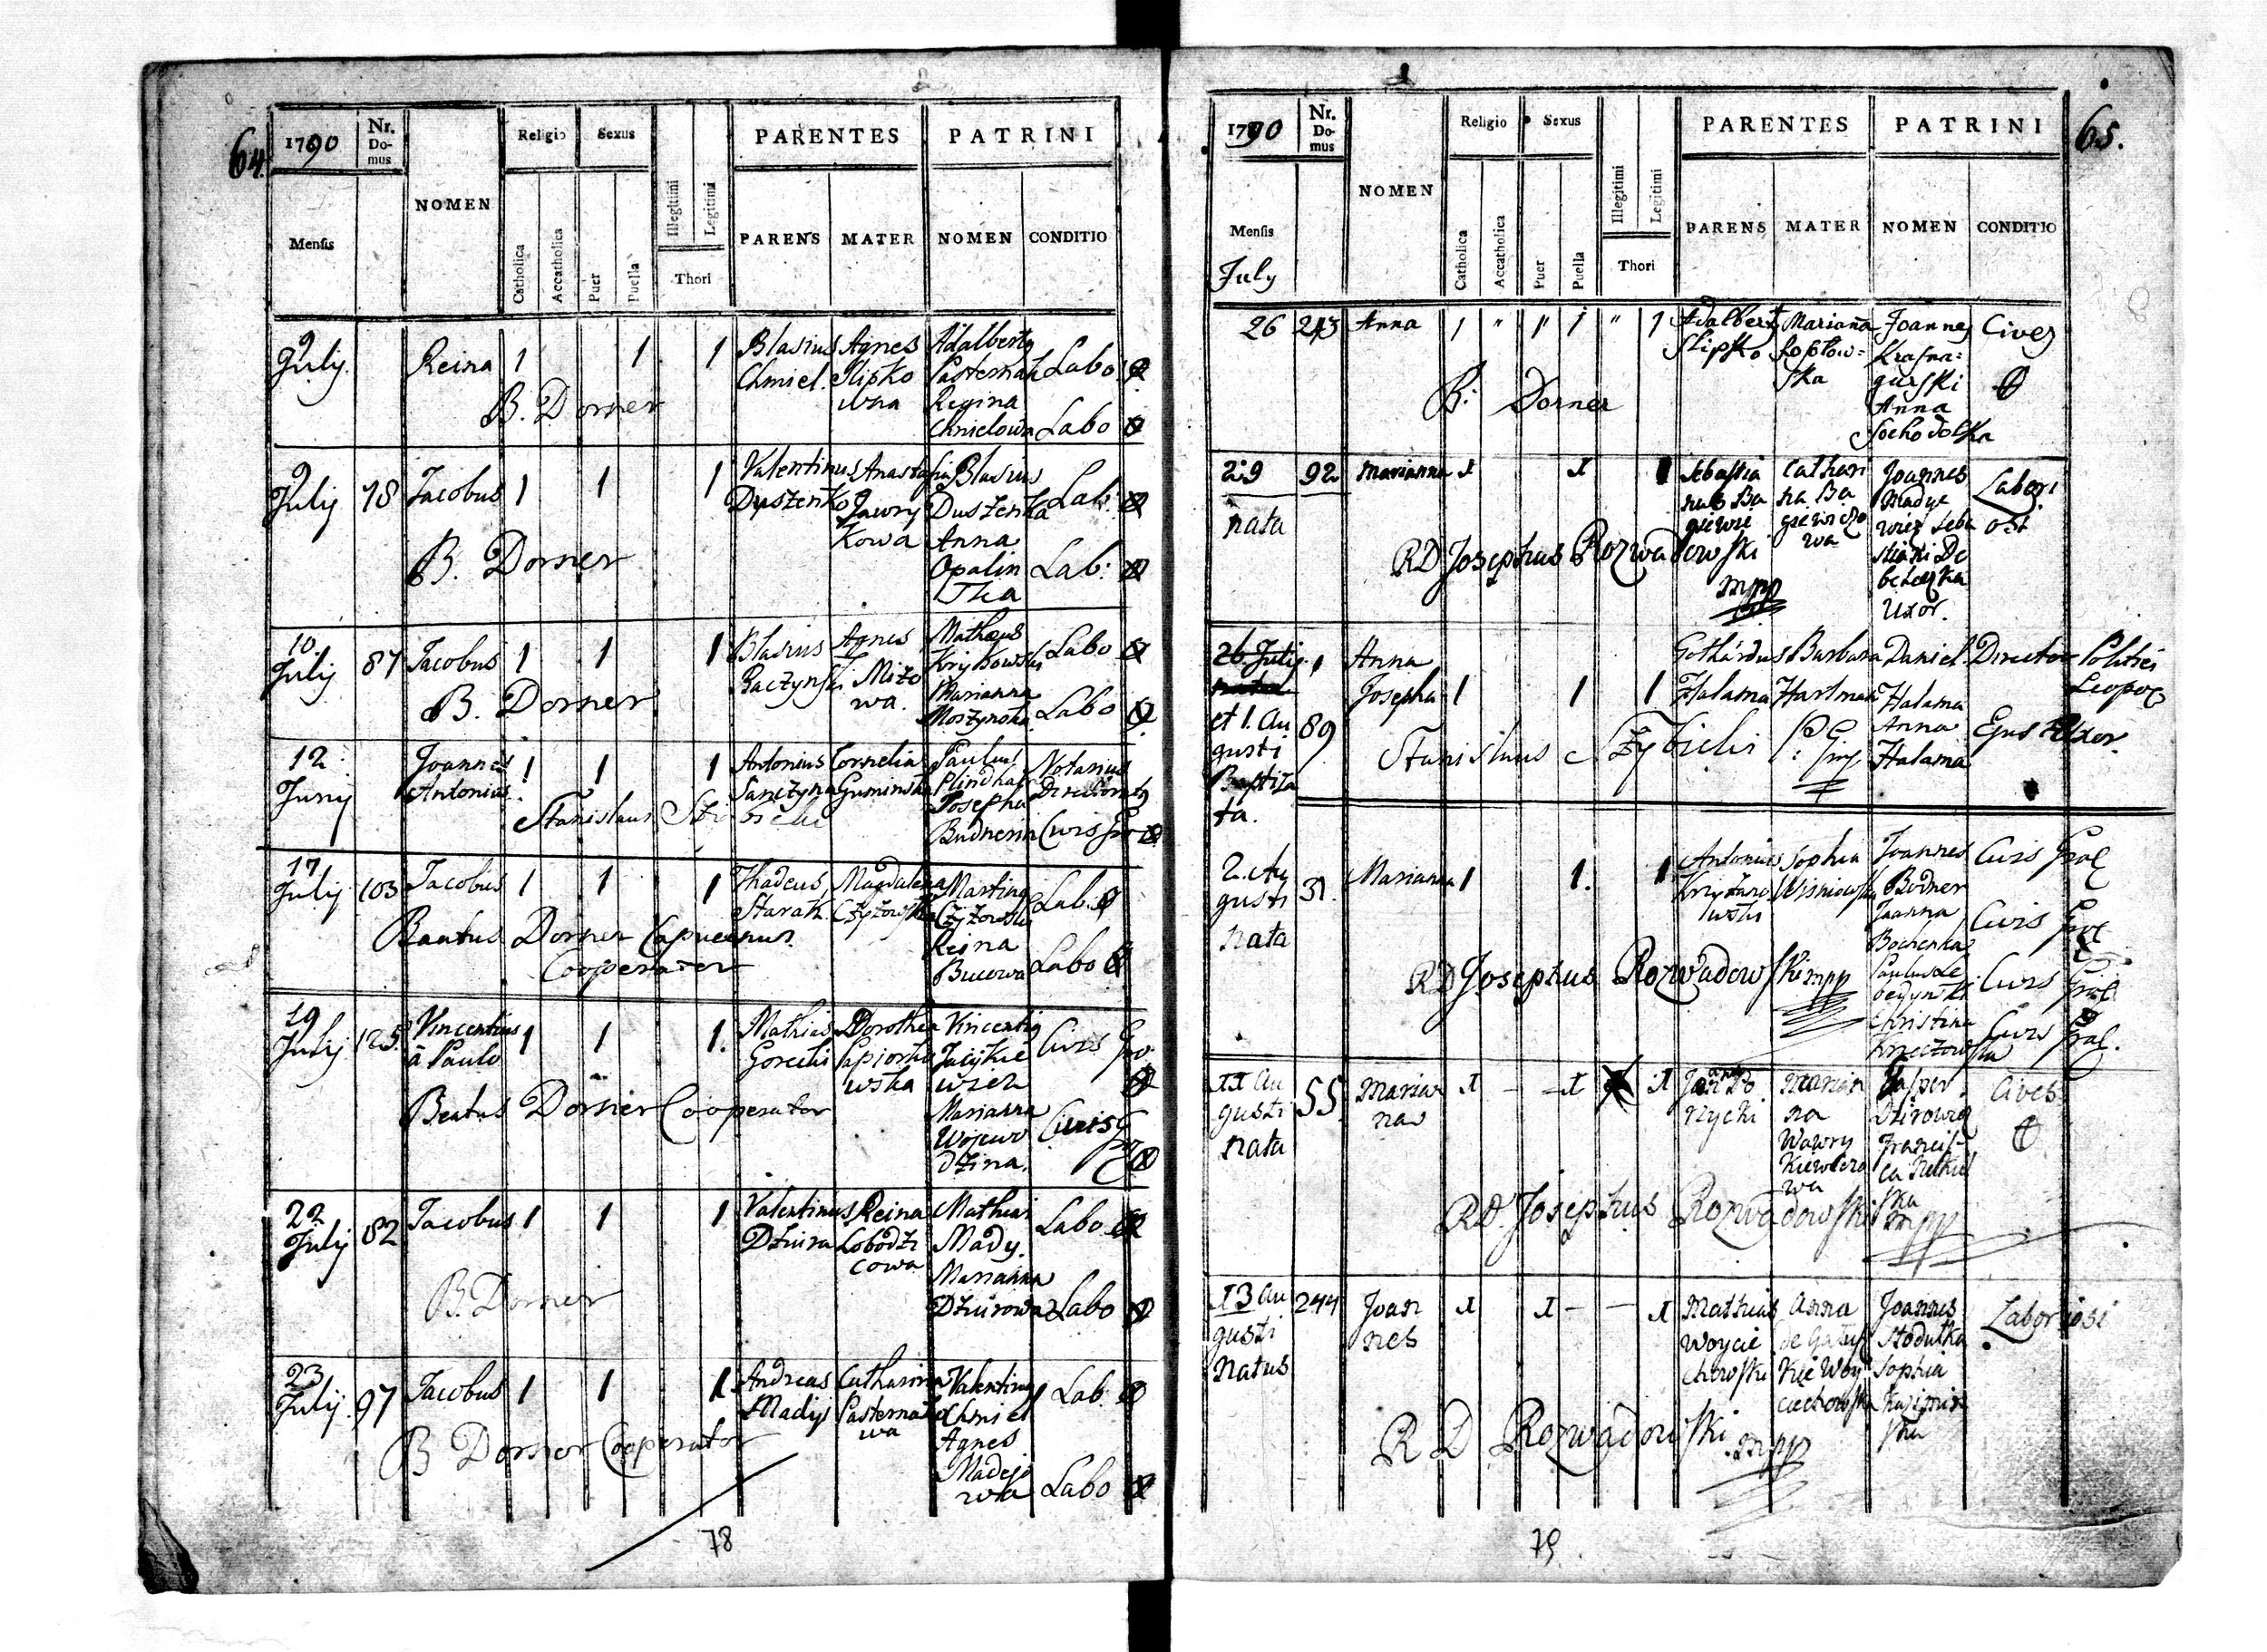 64.
1790
Nr. Do-
mus
Mensis
NOMEN
Religio
Sexus
Catholica
Accatholica
Puer
Puella
Illegitimi
Legitimi
Thori
PARENTES
PATRINI
PARENS
MATER
NOMEN
CONDITIO
9
July
Reina
1
1
1
Blasius
Chmiel.
Agnes
Slipko
wna
Adalberty
Pasternak
Regina
Chmielowa
Labo
Labo
B. Dorner
9
July
78
Jacobus
1
1
1
Valentinus
Duszenko
Anastasia
Jawry
Kowa
Blasius
Duszenka
Anna
Opalin
Ska
Lab:
Lab:
B. Dorner
10
July
87
Jacobus
1
1
1
Blasius
Baczynski
Agnes
Mizo
wa.
Matheus
Krykowski
Marianna
Moszynska
Labo
Labo
B. Dorner
12
Juny
Joannes
Antonius
1
1
1
Antonius
Sanczyna
Cornelia
Guminska
Paulus
Josepha
Budnerin
Notarius
Civis Gro
Stanislaus Szybicki
17
July
103
Jacobus
1
1
1
Thadeus
Starak
Magdalena
Czyzowska
Marting
Czyzowski
Reina
Bucowa
Lab:
Labo
Beatus Dorner Capucinus
Cooperator
19
July
125
Vincentius
à Paulo
1
1
1.
Mathias
Gorecki
Dorothea
wska
Vincenti9
wicz
Marianna
Wojewo
dzina.
Civis Gro
Civis G
Beatus Dorner Cooperator
22
July
82
Jacobus
1
1
1
Valentinus
Dziura
Reina
Lobodzi
cowa
Mathias
Mady.
Marianna
Dziurowa
Labo
Labo
B. Dorner
23
July
97
Jacobus
1
1
1
Andreas
Madij
Catharina
Pasternako
wa
Valenting
Chmiel
Agnes
Madejo
wa
Lab
Labo
B Dorner Cooperator
78
65.
1790
Nr.
Do-
mus
Mensis
July
NOMEN
Religio
Sexus
Catholica
Accatholica
Puer
Puella
Illegitimi
Legitimi
Thori
PARENTES
PATRINI
PARENS
MATER
NOMEN
CONDITIO
26
243
Anna
1
"
1
"
1
Adalbert
Slipko
Marianna
Soplow=
ska
Joannes
Krasna=
gurski
Anna
Sochodolska
Cives
B: Dorner
29
nata
92
Marianna
1
1
1
Sebastia
nus Ba
giewic
Cathari
na Ba
giewiczo
wa
Joannes
Madye
wicz Seba
stiani De
Uxor.
Labori
osi
RD Josephus Rozwadowski
mpp
26 July
nata
et 1. Au
gusti
Baptiza
ta.
89
Anna
Josepha
1
1
1
Gothardus
Halama
Barbara
Hartman
Daniel
Halama
Anna
Halama
Director Politiei
Leopol
Ejus Uxor.
Stanislaus Szybicki
2. Au
gusti
nata
31.
Marianna
1
1.
1
Antonius
Krzyzano
wski
Sophia
Wisniowska
Joannes
Bodner
Joanna
Bochenka
Christina
Civis Grod
Civis Grod
Civis Grod
Civis Grod.
RD Josephus Rozwadowski mpp
11 Au
gusti
nata
55
Marian
na
1
–
–1
1
nycki
Marian
na
Wawry
Kiewiczo
wa
Kasper
Francis
ca
ska
Cives
RD. Josephus Rozwadowski mpp
13 Au
gusti
natus
244
Joan
nes
1
1
–
–
1
Mathias
Woycie
chowski
Anna
de
Kie Woy
ciechowska
Joannes
Stodulka
Sophia
ska
Laboriosi
R D Rozwadowski mpp
79